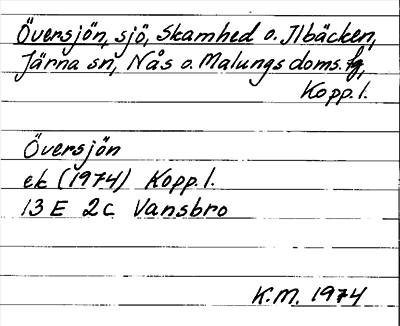 Översjön, sjö, Skamhed o. Ilbäcken,
Järna sn, Nås o. Malungs doms.fg,
Kopp. l.
Översjön
ek (1974) Kopp. l.
13 E 2c Vansbro
K.M. 1974